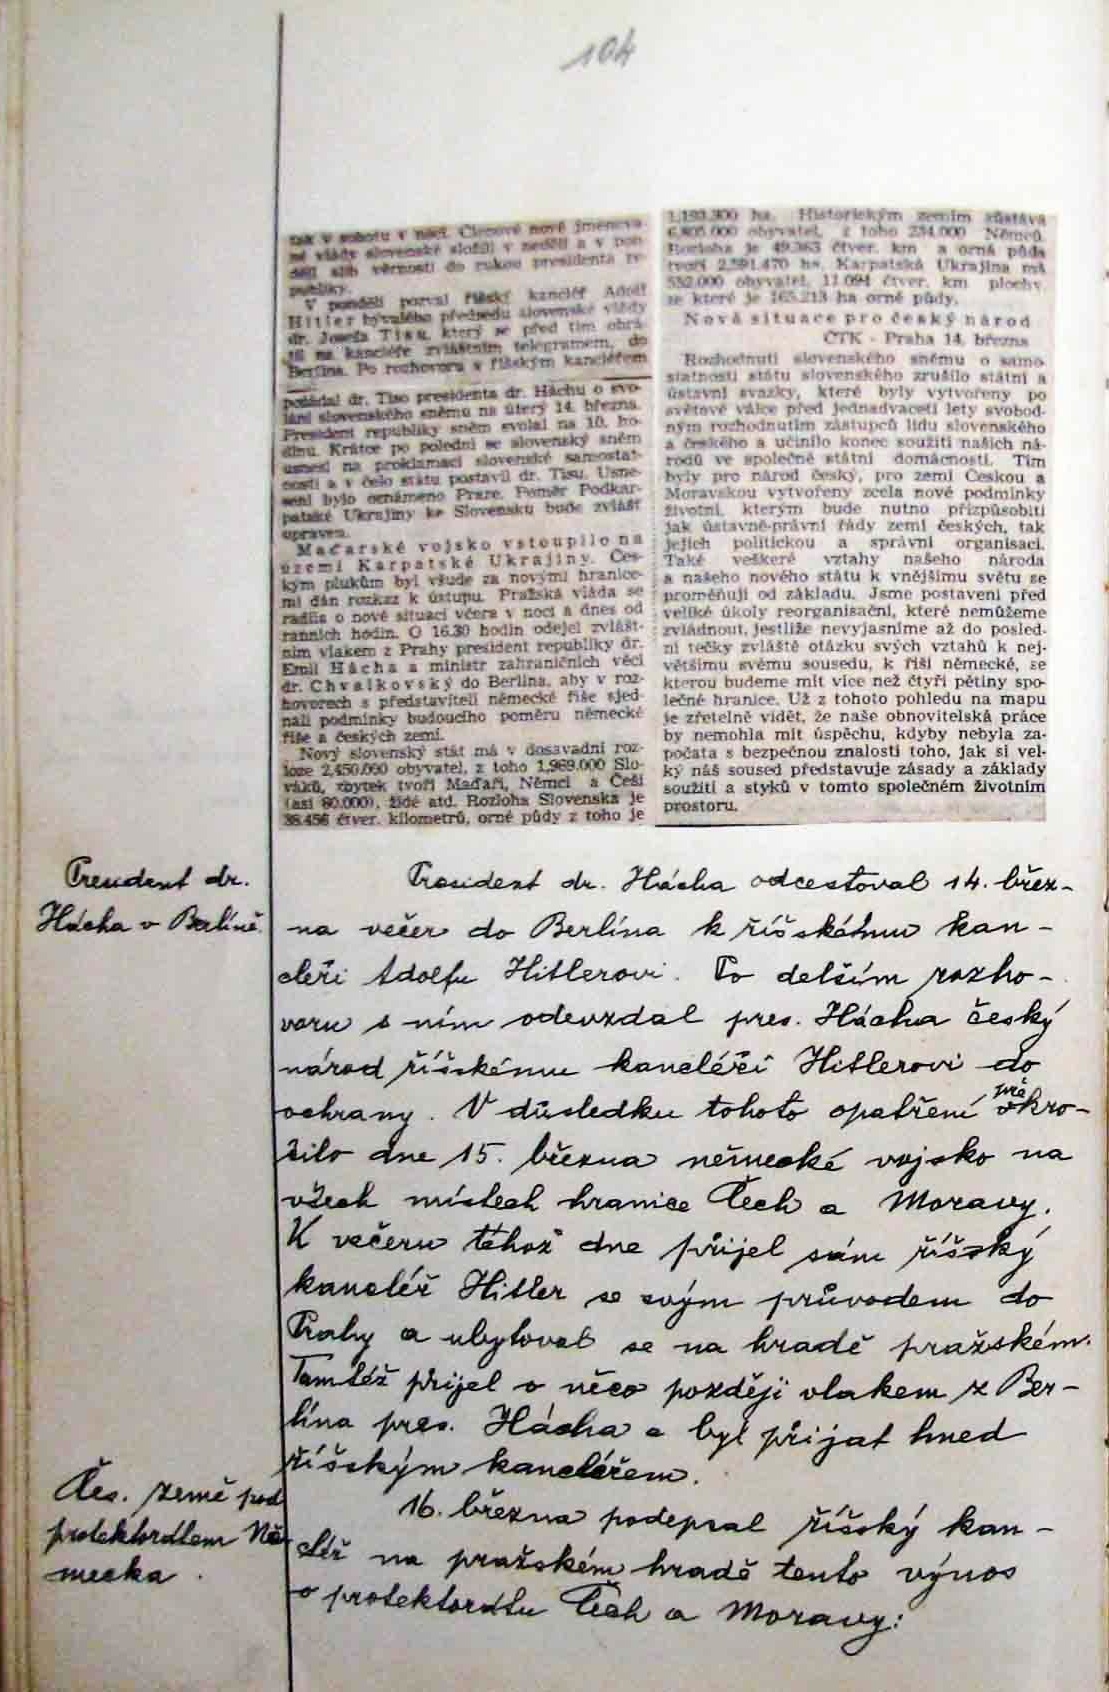 104
tak v sobotu v noci. Členové nově jmenova-
né vlády slovenské složili v neděli a v pon-
dělí slib věrnosti do rukou presidenta re-
publiky.
V pondělí pozval říšský kancléř Adolf
Hitler bývalého předsedu slovenské vlády
dr. Josefa Tisu, který se před tím obrá-
til na kancléře zvláštním telegramem, do
Berlína. Po rozhovoru s říšským kancléřem
požádal dr. Tiso presidenta dr. Háchu o svo-
lání slovenského sněmu na úterý 14. března.
President republiky sněm svolal na 10. ho-
dinu. Krátce po poledni se slovenský sněm
usnesl na proklamaci slovenské samostat-
nosti a v čelo státu postavil dr. Tisu. Usne-
sení bylo oznámeno Praze. Poměr Podkar-
patské Ukrajiny ke Slovensku bude zvlášť
upraven.
Maďarské vojsko vstoupilo na
území Karpatské Ukrajiny. Čes-
kým plukům byl všude za novými hranice-
mi dán rozkaz k ústupu. Pražská vláda se
radila o nové situaci včera v noci a dnes od
ranních hodin. O 16.30 hodin odejel zvlášt-
ním vlakem z Prahy president republiky dr.
Emil Hácha a ministr zahraničních věcí
dr. Chvalkovský do Berlína, aby v roz-
hovorech s představiteli německé říše sjed-
nali podmínky budoucího poměru německé
říše a českých zemí.
Nový slovenský stát má v dosavadní roz-
loze 2,450.000 obyvatel, z toho 1,969.000 Slo-
váků, zbytek tvoří Maďaři, Němci a Češi
(asi 80.000), židé atd. Rozloha Slovenska je
38.456 čtver. kilometrů, orné půdy z toho je
1,193.300 ha. Historickým zemím zůstává
6,805.000 obyvatel, z toho 234.000 Němců.
Rozloha je 49.363 čtver. km a orná půda
tvoří 2,591.470 ha. Karpatská Ukrajina má
552.000 obyvatel, 11.094 čtver. km plochy,
ze které je 165.213 ha orné půdy.
Nová situace pro český národ
ČTK - Praha 14. března
Rozhodnutí slovenského sněmu o samo-
statnosti státu slovenského zrušilo státní a
ústavní svazky, které byly vytvořeny po
světové válce před jednadvaceti lety svobod-
ným rozhodnutím zástupců lidu slovenského
a českého a učinilo konec soužití našich ná-
rodů ve společné státní domácnosti. Tím
byly pro národ český, pro zemi Českou a
Moravskou vytvořeny zcela nové podmínky
životní, kterým bude nutno přizpůsobiti
jak ústavně-právní řády zemí českých, tak
jejich politickou a správní organisaci.
Také veškeré vztahy našeho národa
a našeho nového státu k vnějšímu světu se
proměňují od základu. Jsme postaveni před
veliké úkoly reorganisační, které nemůžeme
zvládnout, jestliže nevyjasníme až do posled-
ní tečky zvláště otázku svých vztahů k nej-
většímu svému sousedu, k říši německé, se
kterou budeme mít více než čtyři pětiny spo-
lečné hranice. Už z tohoto pohledu na mapu
je zřetelně vidět, že naše obnovitelská práce
by nemohla mít úspěchu, kdyby nebyla za-
počata s bezpečnou znalostí toho, jak si vel-
ký náš soused představuje zásady a základy
soužití a styků v tomto společném životním
prostoru.
President dr.
Hácha v Berlíně.
President dr. Hácha odcestoval 14. břez-
na večer do Berlína k říšskému kan-
cléři Adolfu Hitlerovi. Po delším rozho-
voru s ním odevzdal pres. Hácha český
národ říšskému kancléři Hitlerovi do
ochrany. V důsledku tohoto opatření překro-
čilo dne 15. března německé vojsko na
všech místech hranice Čech a Moravy.
K večeru téhož dne přijel sám říšský
kancléř Hitler se svým průvodem do
Prahy a ubytoval se na hradě pražském.
Tamtéž přijel o něco později vlakem z Ber-
lína pres. Hácha a byl přijat hned
říšským kancléřem.
Čes. země pod
protektorátem Ně-
mecka.
16. března podepsal říšský kan-
cléř na pražském hradě tento výnos
o protektorátu Čech a Moravy: